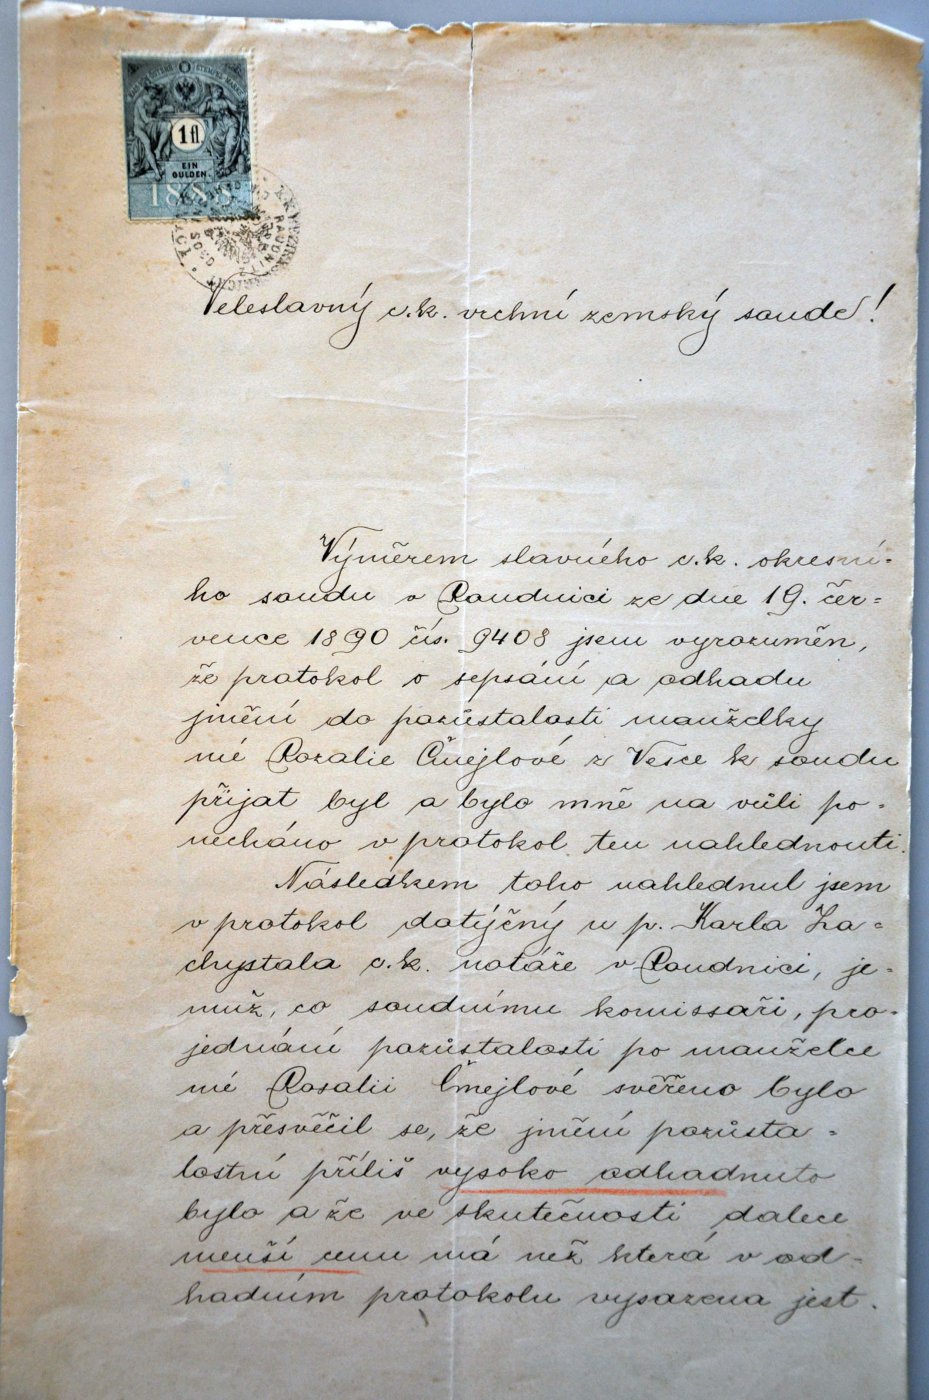 1 fl
EIN
GULDEN.
1888
Veleslavný c.k. vrchní zemský soude!
Výměrem slavného c.k. okresní-
ho soudu v Roudnici ze dne 19. čer-
vence 1890 čís. 9408 jsem vyrozuměn,
že protokol o sepsání a odhadu
jmění do pozůstalosti manželky
mé Rozalie Čmejlové z Vesce k soudu
přijat byl a bylo mně na vůli po-
necháno v protokol ten nahlednouti.
Následkem toho nahlednul jsem
v protokol dotýčný u p. Karla Za-
chystala c.k. notáře v Roudnici, je-
muž, co soudnímu komissaři, pro-
jednání pozůstalosti po manželce
mé Rosalii Čmejlové svěřeno bylo
a přesvěčil se, že jmění pozůsta-
lostní příliš vysoko odhadnuto
bylo a že ve skutečnosti dalece
menší cenu má než která v od-
hadním protokolu vysazena jest.